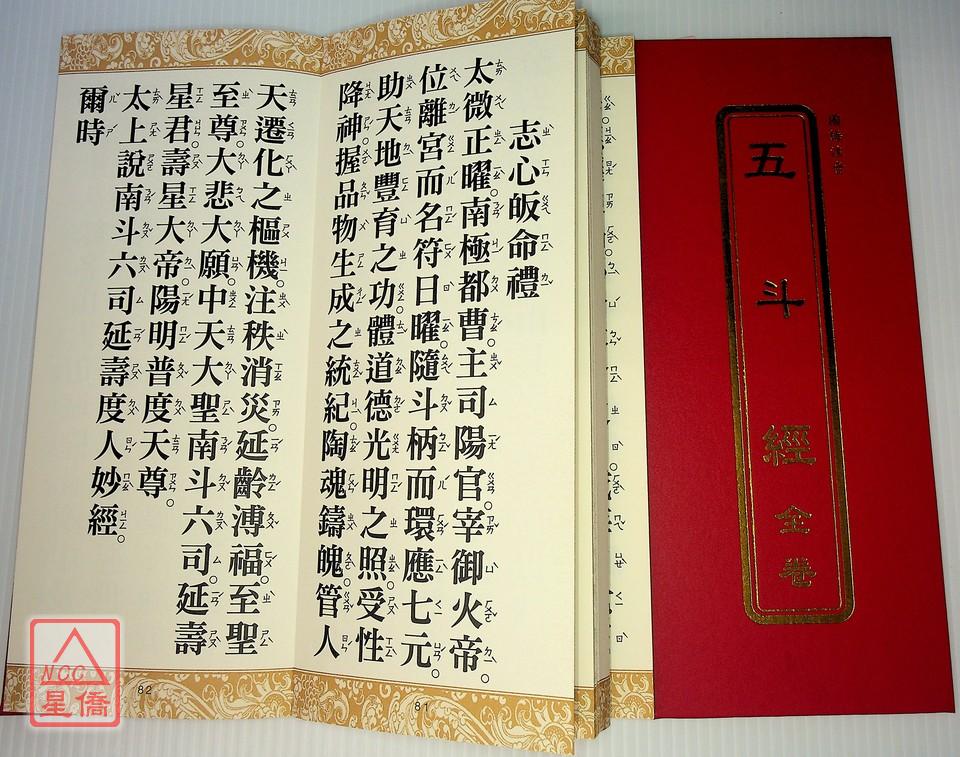 志心皈命禮
太微正曜。南極都曹。主司陽官。宰御火帝。
位離宮而名符日曜。隨斗柄而環應七元。
助天地豐育之功。體道德光明之照。受性
降神。握品物生成之統紀。陶魂鑄魄。管人
81
天遷化之樞機。注秩消災。延齡溥福。至聖
至尊。大悲大願。中天大聖南斗六司。延壽
星君。壽星大帝。陽明普度天尊。
太上說南斗六司延壽度人妙經。
爾時
82
五斗經全卷
NCC
星僑